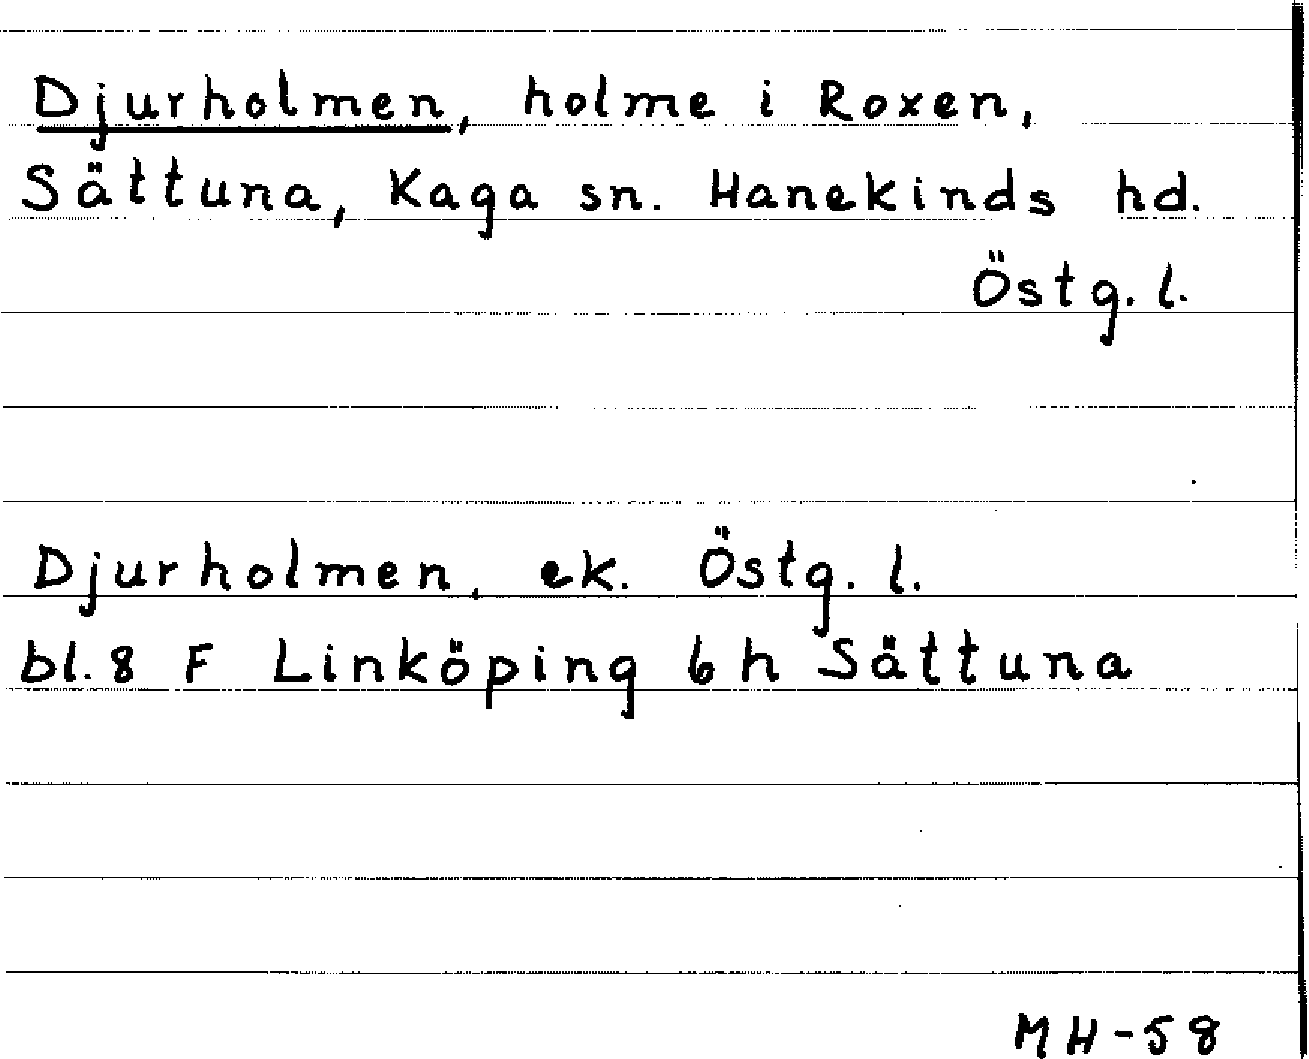 Djurholmen, holme i Roxen,
Sättuna, Kaga sn. Hanekinds hd.
Östg. l.
Djurholmen, ek. Östg. l.
bl. 8 F Linköping 6 h Sättuna
MH-58